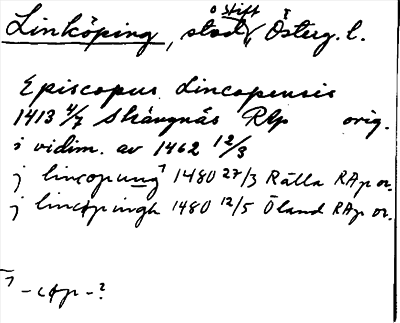 Linköping, stad o stift, Österg. l.
Episcopus Lincopensis
1413 4/7 Skängnäs RAp orig.
i vidim. av 1462 12/3
j lincopung 1480 27/3 Rälla RAp or.
j lincøpingh 1480 12/5 Öland RAp or.
- cøp - ?